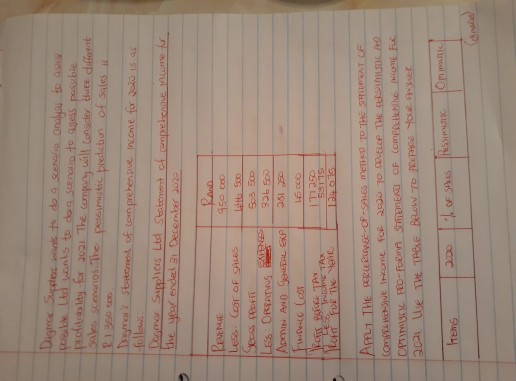 Dagmar Suppliers wants to do a scenario analysis to assess
possible Ltd wants to do a scenario to assess possible
profitability for 2021. The company will consider three different
sales scenarios. The pessimistic prediction of sales is
R1 350 000.
Dagmar's statement of comprehensive income for 2020 is as
follows
Dagmar Suppliers Ltd Statement of comprehensive income for
the year ended 31 December 2020
RAND
REVENUE 950 000
LESS: COST OF SALES 446 500
GROSS PROFIT 503 500
LESS OPERATING EXPENSES 326 250
ADMIN AND GENERAL EXP 281 250
FINANCE COST 45 000
PROFIT BEFORE TAX 177 250
LESS INCOME TAX 53 175
PROFIT FOR THE YEAR 124 075
APPLY THE PERCENTAGE-OF-SALES METHOD TO THE STATEMENT OF
COMPREHENSIVE INCOME FOR 2020 TO DEVELOP THE PESSIMISTIC AND
OPTIMISTIC PRO-FORMA STATEMENT OF COMPREHENSIVE INCOME FOR
2021. USE THE TABLE BELOW TO PREPARE YOUR ANSWER
ITEMS 2020 % OF SALES PESSIMISTIC OPTIMISTIC